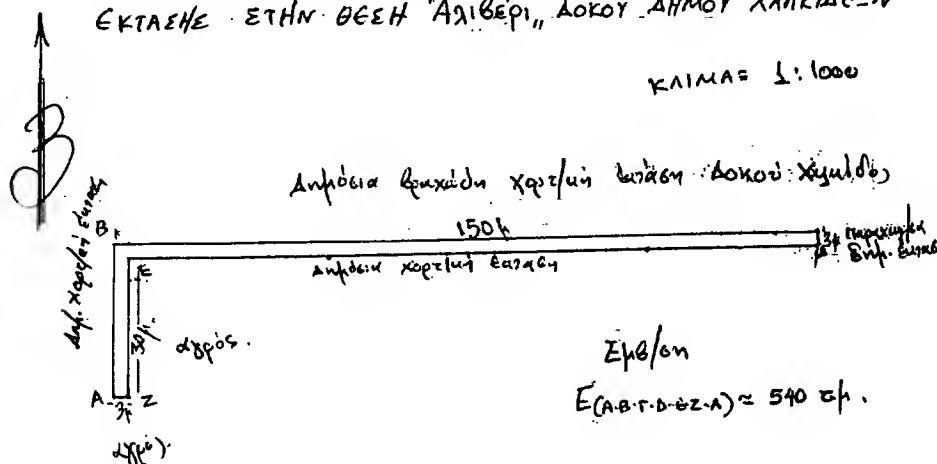 ΕΚΤΑΣΗΣ ΣΤΗΝ ΘΕΣΗ "Αλιβέρι„ ΔΟΚΟΥ ΔΗΜΟΥ ΧΑΛΚΙΔΕΩΝ
ΚΛΙΜΑ= 1:1000
Β
Δημόσια βραχώδη χορτ/κή έκταση Δοκού Χαλκίδος
Β
150μ
Δημ. χορτ/κή έκταση
Δημόσια χορτ/κή έκταση
3μ
Δημ. έκταση
Ε
30μ.
αγρός.
Α
3μ
Ζ
αγρός.
Εμβ/ση
Ε(Α-Β-Γ-Δ-Ε-Ζ-Α) ≈ 540 τμ.